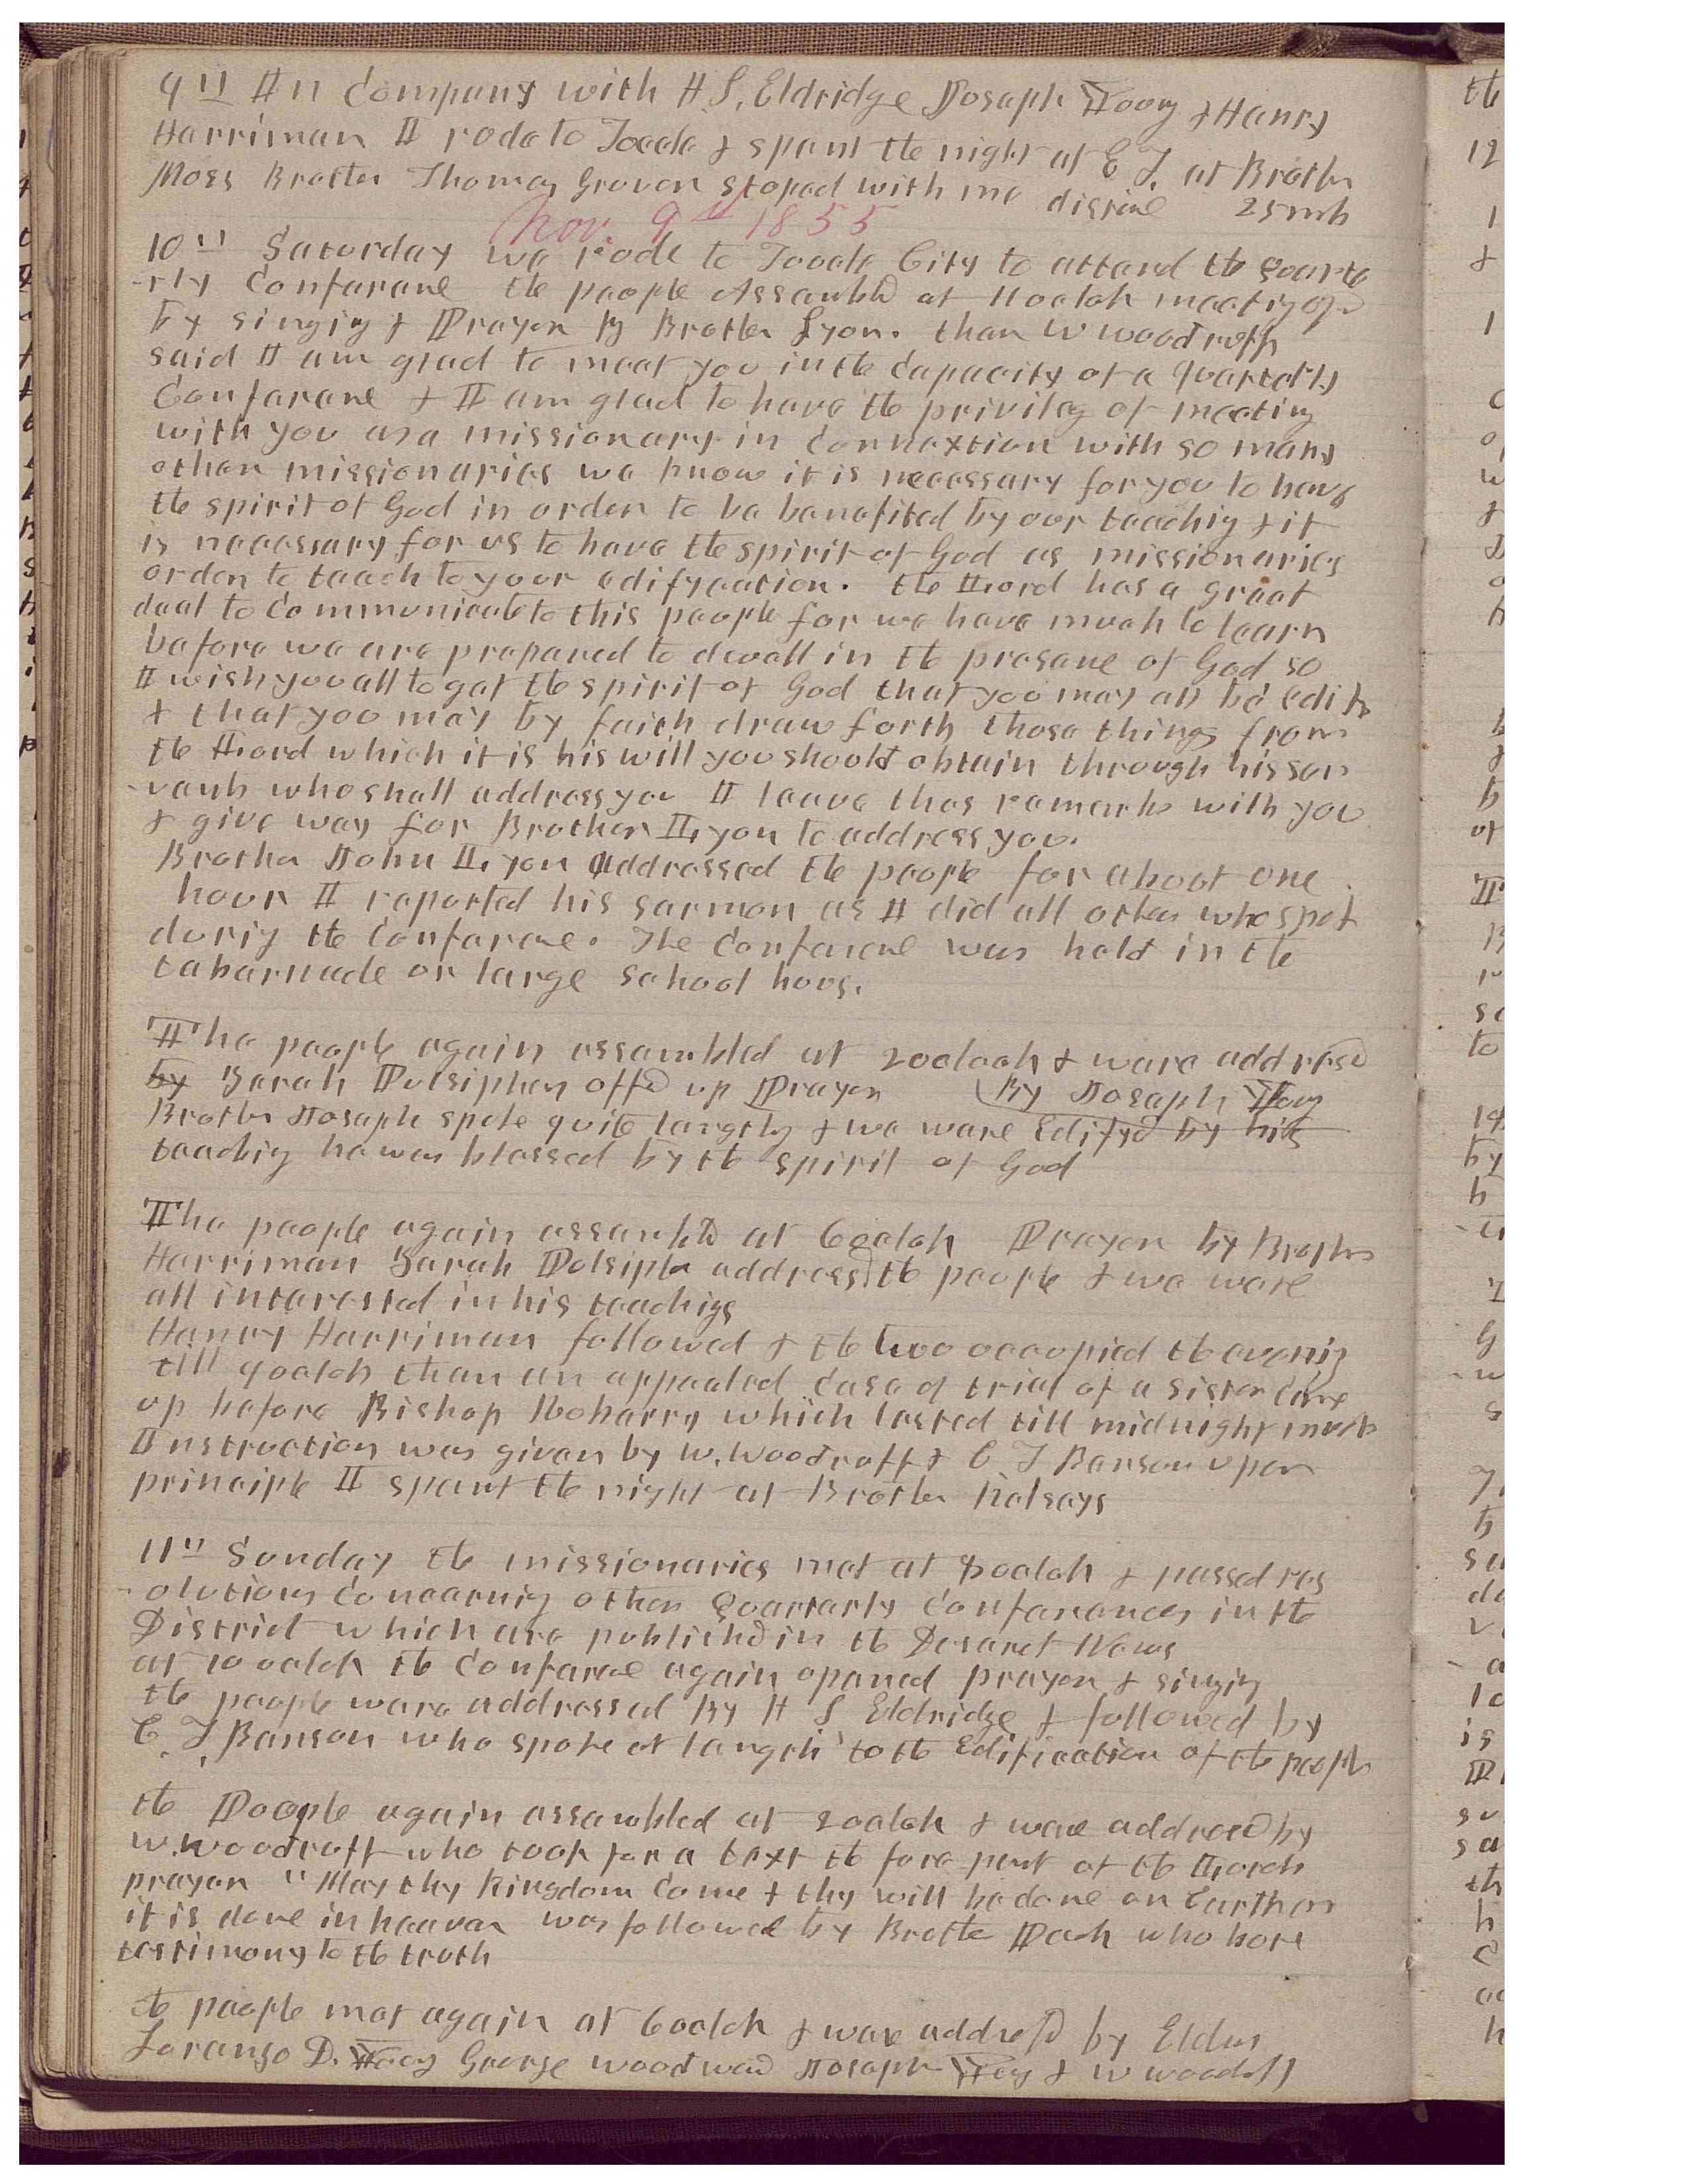 9th In Company with H. S. Eldridge Joseph Young & Henry
Harriman I rode to Tooele & spent the night at E T. at Brother
Moss Brother Thomas Grover stoped with me distance 25 mls
Nov. 9th 1855
10th Saturday we rode to Tooele City to attend the Quarte
-rly Conferance the people Assembld at 11 oclok meeting opd
by singing & Prayer By Brother Lyon. then W Woodruff
said I am glad to meet you in the capacity of a Quarterly
Conferance & I am glad to have the privileg of meeting
with you as a missionary in Connextion with so many
other missionaries we know it is necessary for you to have
the spirit of God in order to be benefited by our teaching & it
is necessary for us to have the spirit of God as missionaries
order to teach to your edifycation. the Lord has a great
deal to communicate to this people for we have much to learn
before we are prepared to dwell in the presence of God so
I wish you all to get the spirit of God that you may all be edifd
& that you may by faith draw forth those things from
the Lord which it is his will you should obtain through his ser
-vants who shall address you I leave thes remarks with you
& give way for Brother Lyon to address you.
Brother John Lyon addressed the people for about one
hour I reported his sermon as I did all others who spok
during the Conferance. The Conferance was held in the
tabernacle or large school hous.
The people again assembled at 2 oclock & were addressd
by Zerah Pulsipher offd up Prayer By Joseph Young
Brother Joseph spoke quite lengthy & we were Edifyd by his
teaching he was blessed by the spirit of God
The people again assembld at 6 oclok Prayer by Brother
Harriman Zerah Pulsipher addressd the people & we were
all interested in his teachings
Henry Harriman followed & the two occupied the evening
till 9 oclok then an appealed case of trial of a sister came
up before Bishop Roberry which lasted till midnight much
Instruction was given by W. Woodruff & E T Benson upon
principle I spent the night at Brother Kelseys
11th Sunday the missionaries met at 8 oclok & passed res
-olutions concerning other Quarterly Conferances in the
District which are publishd in the Deseret News
at 10 oclok the Conferance again opened prayer & singing
the people were addressed By H S Eldridge & followed by
E. T. Benson who spoke at length to the Edification of the people
the People again assembled at 2 oclok & were addressed by
W. Woodruff who took for a text the fore part of the Lords
prayer "May thy Kingdom Come & thy will be done on Earth as
it is done in heaven was followed by Brother Peck who bore
testimony to the truth
the people met again at 6 oclok & were addressd by Elders
Lorenzo D. Young George Woodward Joseph Young & W Woodruff